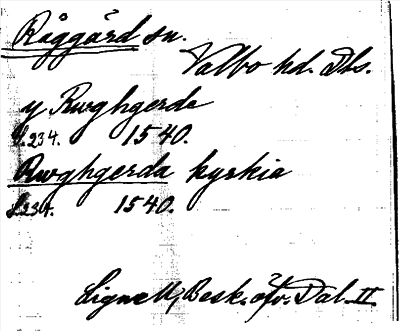 Råggärd sn.
Valbo hd. Dls.
y Rwghgerda
S.234. 1540.
Rwghgerda kyrkia
S.234. 1540.
Lignell, Besk. öfv. Dal. II